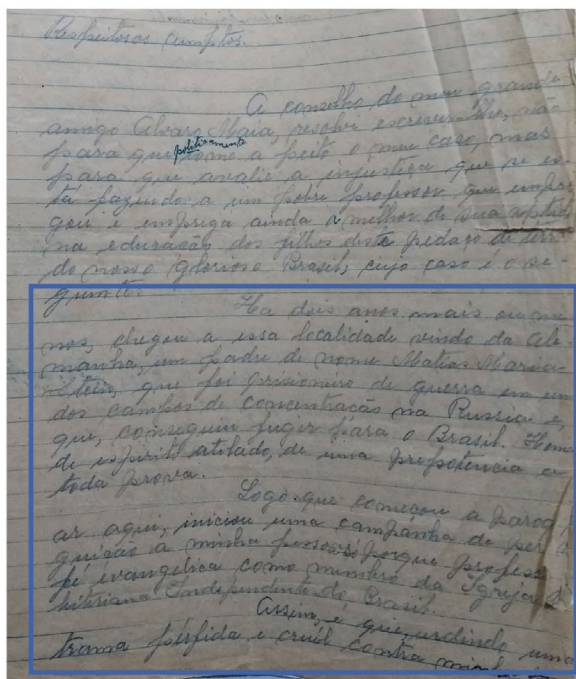 Respeitosos cumptos.
A conselho do meu grande
amigo Alvaro Maia, resolvi escrever-lhe, não
para que politicamente tome a peito o meu caso, mas
para que avalie a injustiça que se es-
tá fazendo a um pobre professor que empre-
gou e emprega ainda o melhor de sua aptidão
na educação dos filhos deste pedaço de terra
do nosso glorioso Brasil, cujo caso é o se-
guinte:
Ha dois anos mais ou me-
nos, chegou a essa localidade vindo da Ale-
manha, um padre de nome Matias Maria
Stein, que foi prisioneiro de guerra em um
dos campos de concentração na Russia e,
que, conseguiu fugir para o Brasil. Homem
de espirito atilado, de uma prepotencia a
toda prova.
Logo que começou a paroq
ar aqui, iniciou uma campanha de per
guição a minha pessoa só porque professo
fé evangelica como membro da Igreja
biteriana Independente do Brasil.
Assim, é que, urdindo uma
trama pérfida e cruel contra